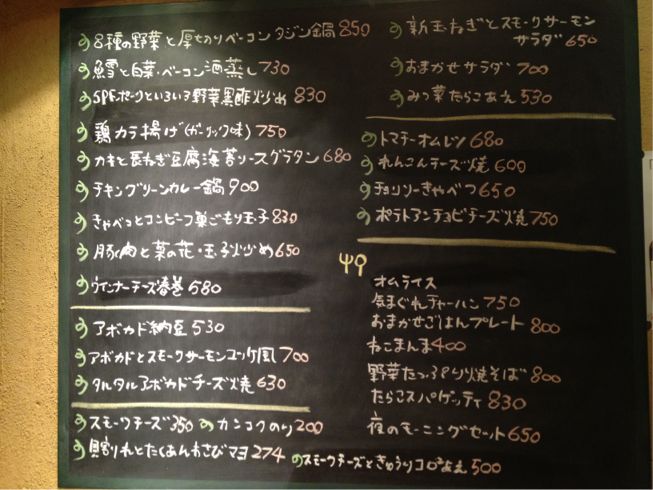 8種の野菜と厚切りベーコンタジン鍋 850
鱈と白菜・ベーコン酒蒸し 730
SPFポークといろいろ野菜黒酢炒め 830
鶏カラ揚げ(ガーリック味) 750
カキと長ねぎ豆腐海苔ソースグラタン 680
チキングリーンカレー鍋 900
きゃべつとコンビーフ巣ごもり玉子 830
豚肉と菜の花・玉子炒め 650
ウインナーチーズ春巻 580
アボカド納豆 530
アボカドとスモークサーモンユッケ風 700
タルタルアボカドチーズ焼 630
スモークチーズ 350 カンコクのり 200
貝割れとたくあんわさびマヨ 274
スモークチーズときゅうりコロコロあえ 500
新玉ねぎとスモークサーモン
サラダ 650
おまかせサラダ 700
みつ葉たらこあえ 530
トマトオムレツ 680
れんこんチーズ焼 600
チョリソーきゃべつ 650
ポテトアンチョビチーズ焼 750
オムライス
気まぐれチャーハン 750
おまかせごはんプレート 800
ねこまんま 400
野菜たっぷり焼そば 800
たらこスパゲッティ 830
夜のモーニングセット 650